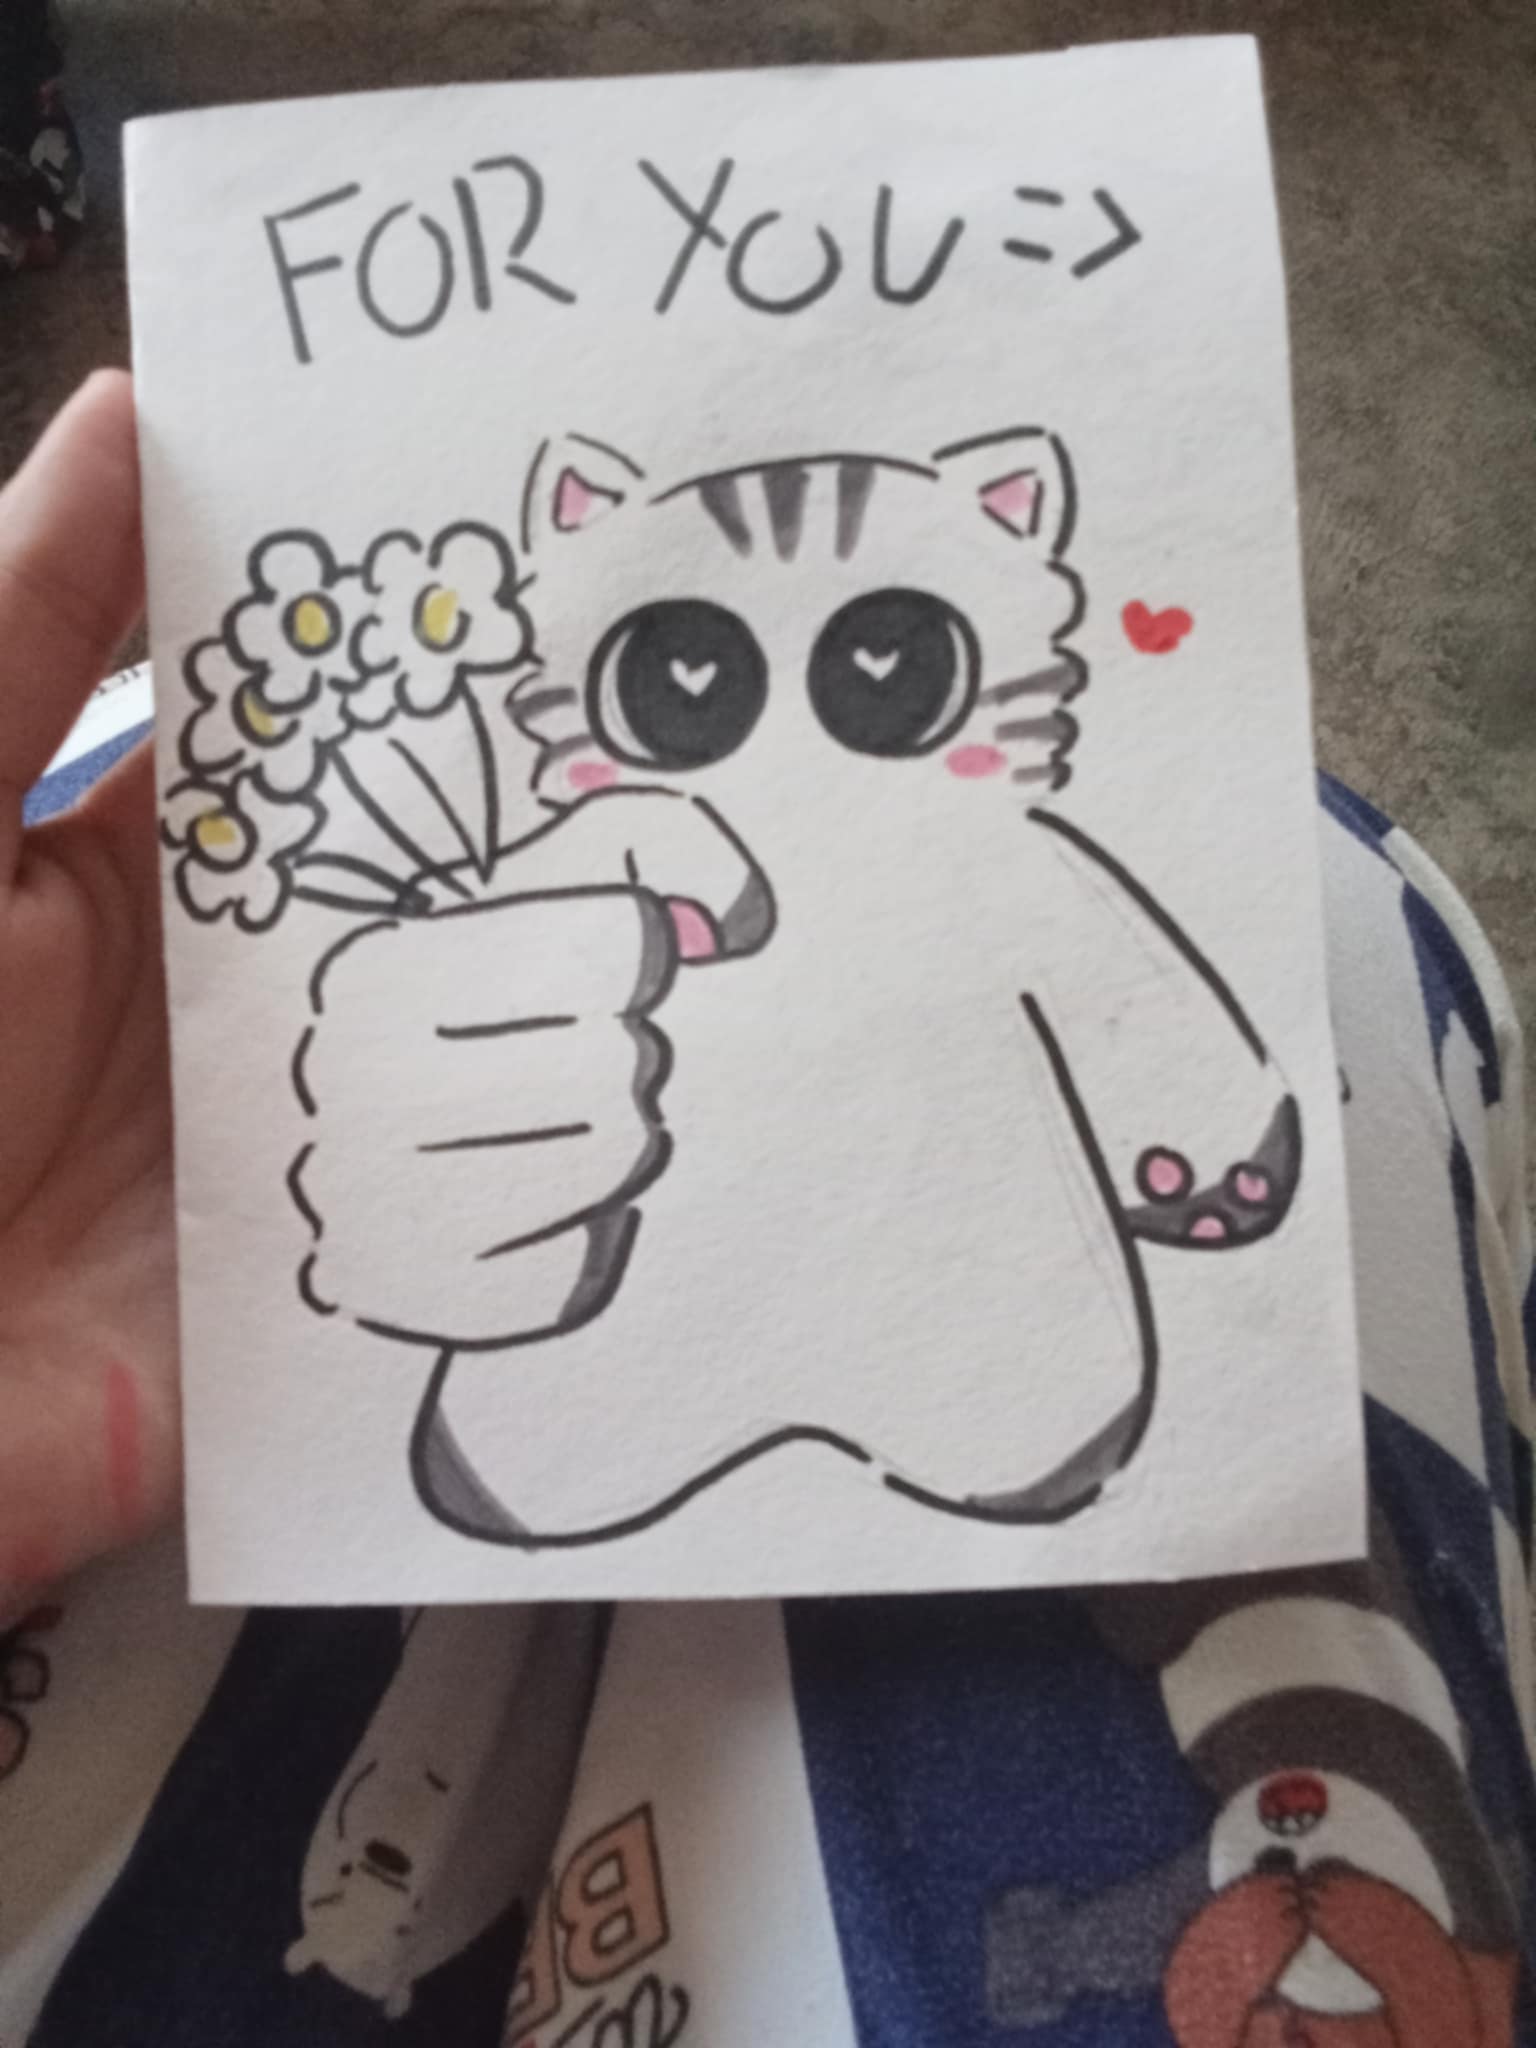 FOR YOU =>